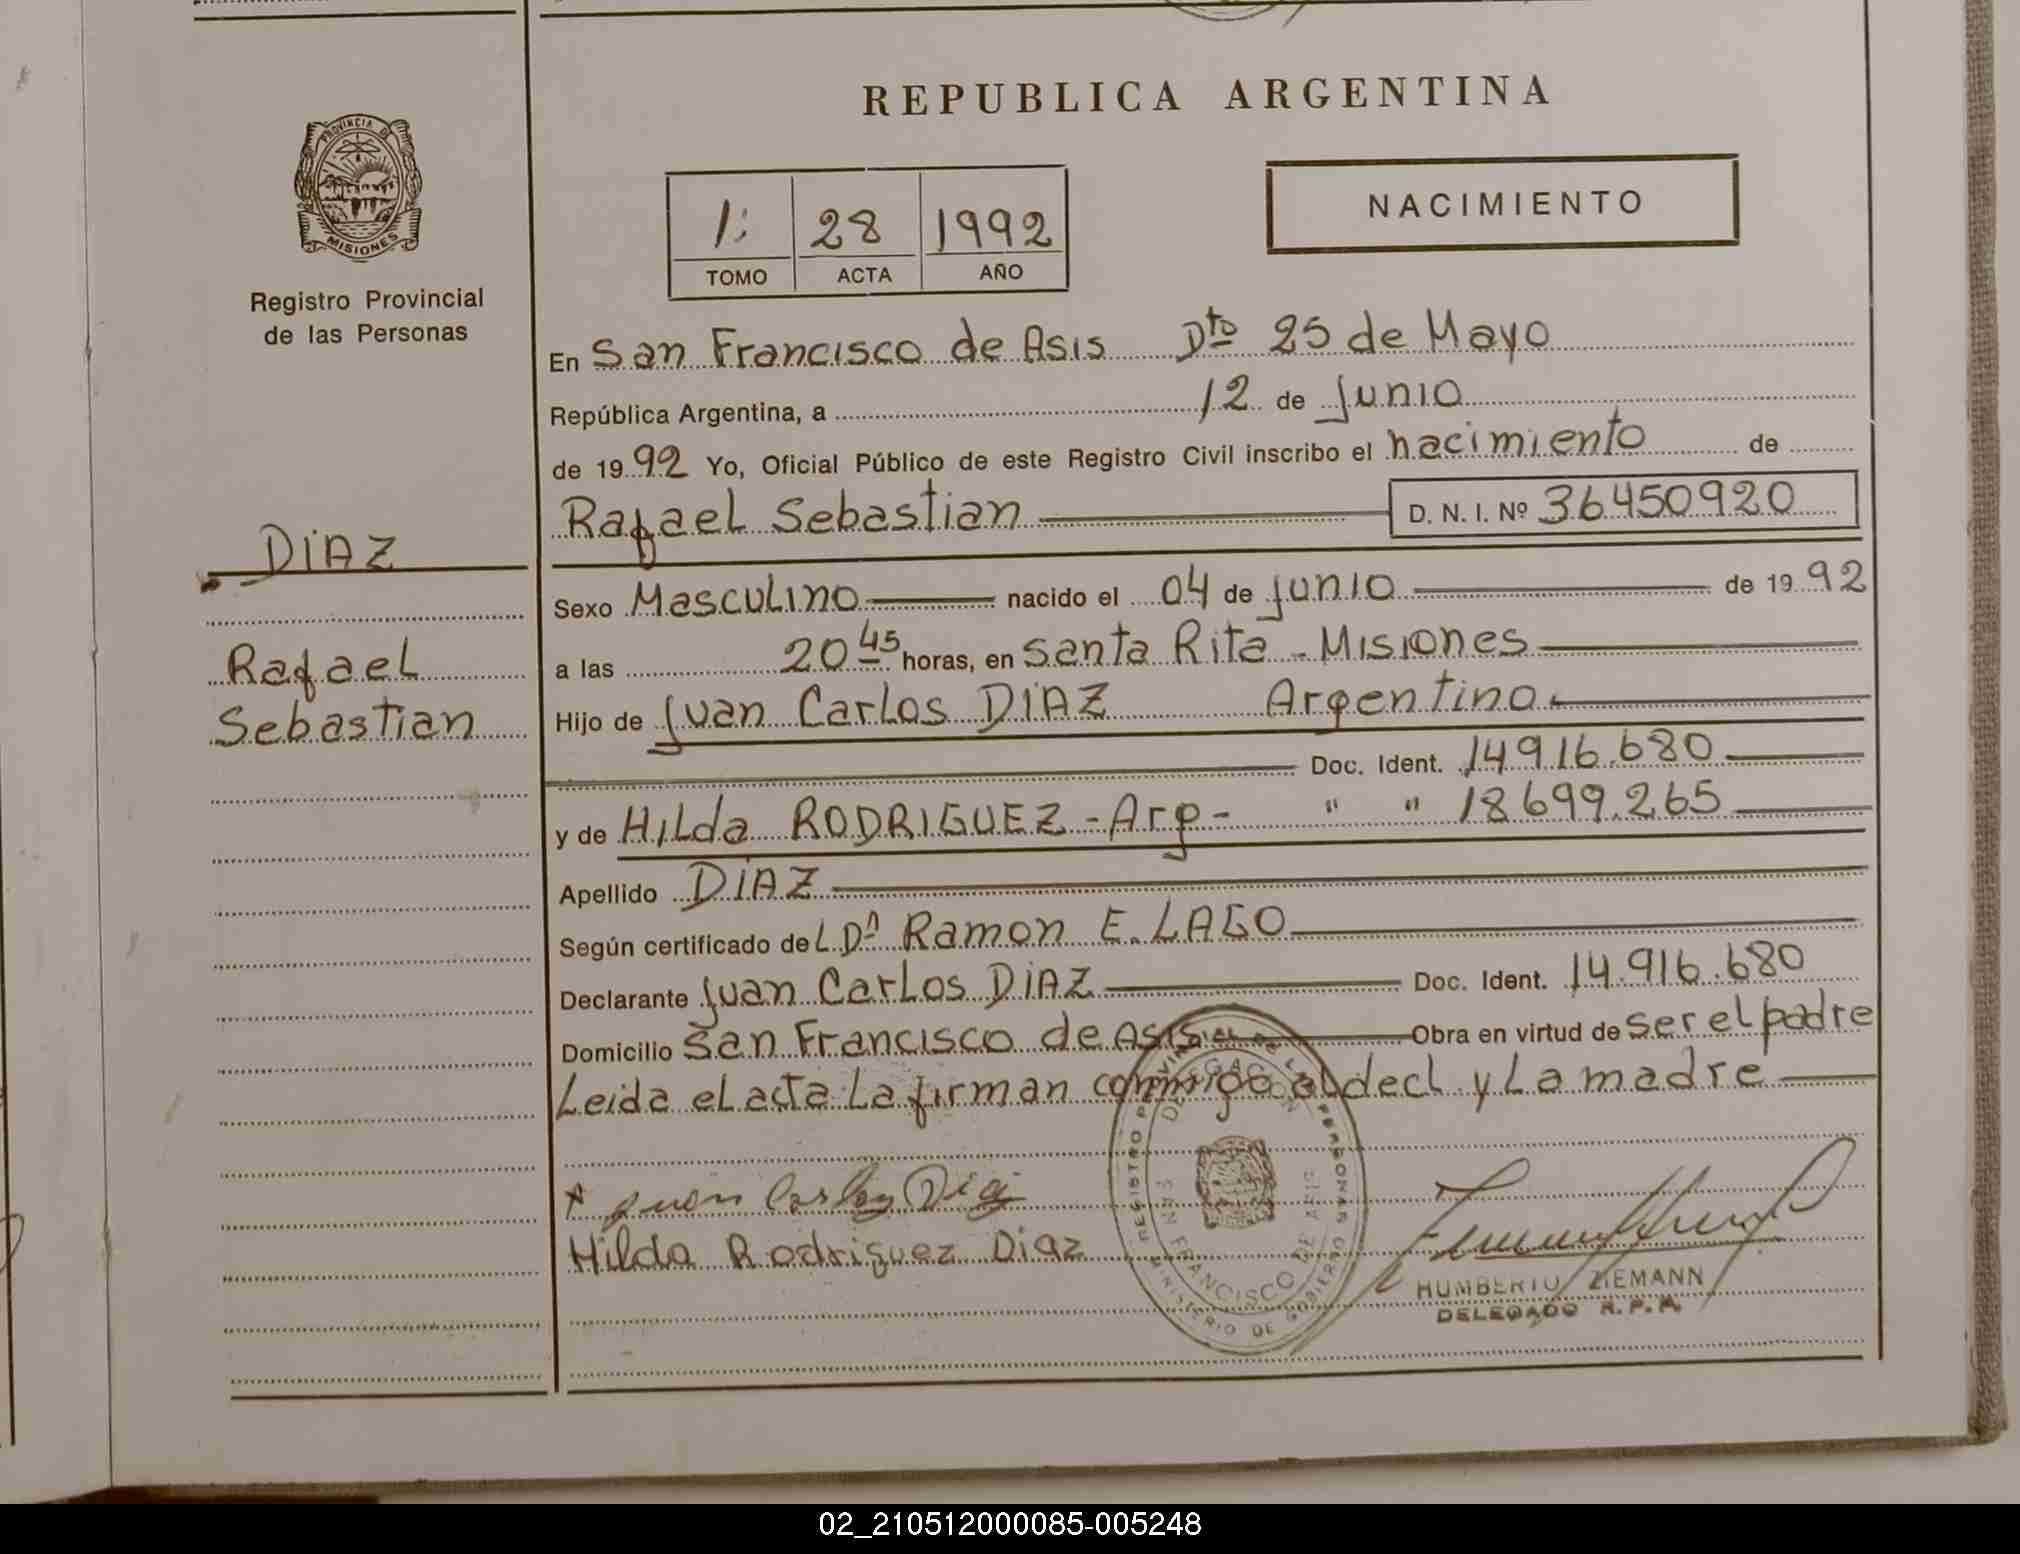 REPUBLICA ARGENTINA
PROVINCIA DE
MISIONES
Registro Provincial
de las Personas
1: 28 1992
TOMO ACTA AÑO
NACIMIENTO
En San Francisco de Asis Dto 25 de Mayo
República Argentina, a 12 de junio
de 1992 Yo, Oficial Público de este Registro Civil inscribo el nacimiento de
Rafael Sebastian D. N. I. Nº 36450920
DIAZ
Rafael
Sebastian
Sexo Masculino nacido el 04 de junio de 1992
a las 20 45 horas, en Santa Rita - Misiones
Hijo de Juan Carlos DIAZ Argentino
Doc. Ident. 14.916.680
y de Hilda RODRIGUEZ - Arg - " " 18699.265
Apellido DIAZ
Según certificado del Dn Ramon E. LAGO
Declarante Juan Carlos DIAZ Doc. Ident. 14.916.680
Domicilio San Francisco de Asis Obra en virtud de ser el padre
Leida el acta La firman conmigo el decl y La madre
Juan Carlos Diaz
Hilda Rodriguez Diaz
REGISTRO PROVINCIAL DE LAS PERSONAS
DELEGACION
SAN FRANCISCO DE ASIS
MINISTERIO DE GOBIERNO
HUMBERTO ZIEMANN
DELEGADO R. P. P.
02_210512000085-005248